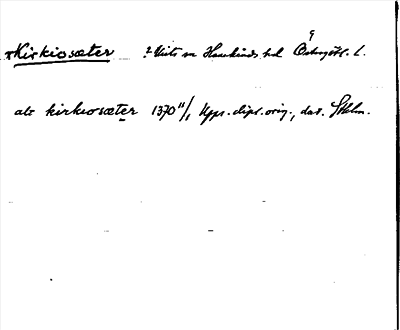 *Kirkiosæter ? Viste sn Hanekinds hd Östergötl. L.
ato kirkiosæter 1370 11/1 Upps. dipl. orig., dat. Sthlm.